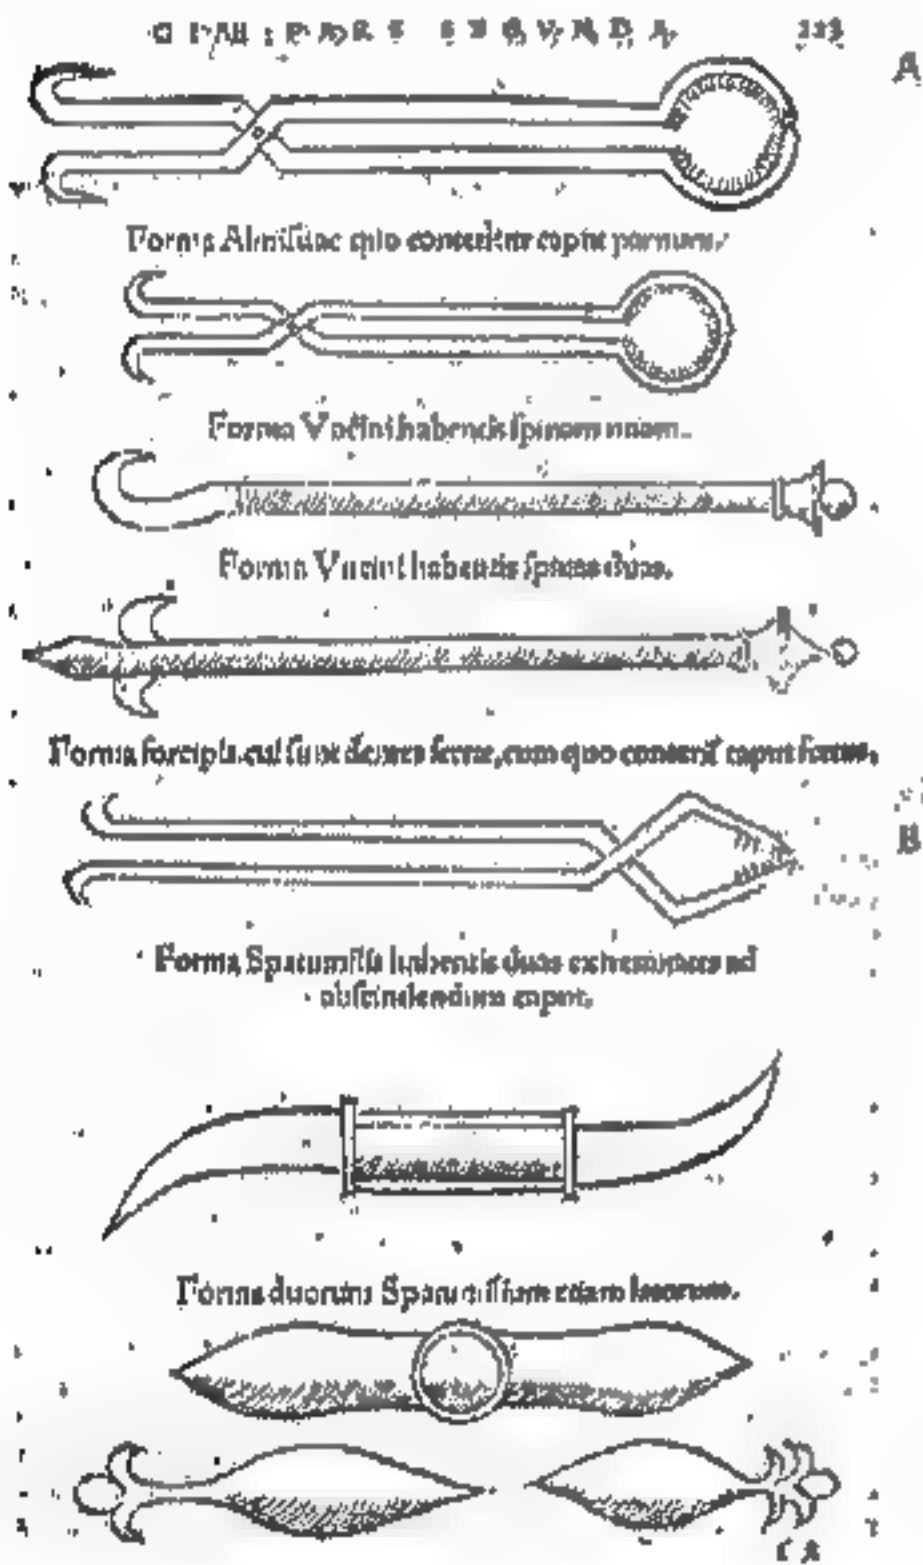 PARS SECVNDA
A
Forma Almisdac quo conteritur caput paruum.
Forma Vncini habentis ſpinam vnam.
Forma Vncini habentis ſpinas duas.
Forma forcipis cui ſunt dentes ſerræ, cum quo conterit caput
B
Forma Spatumilis habentis duas extremitates ad
abſcindendum caput.
Forma duorum Spatumilium etiam latorum.